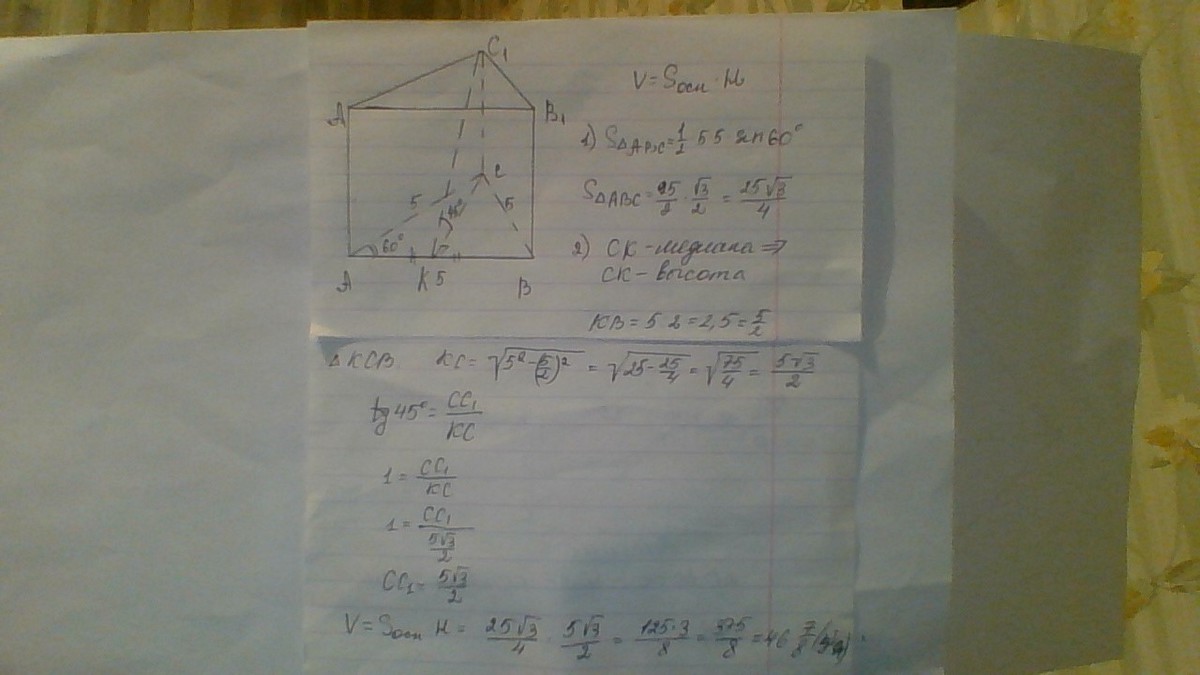 C₁
A
B₁
C
5
45°
5
60°
A
K 5
B
V = Sосн · H
1) S△ABC = 1/2 5 5 sin 60°
S△ABC = 25/2 · √3/2 = 25√3/4
2) CK - медиана ⇒
CK - высота
KB = 5 2 = 2,5 = 5/2
△ KCB. KC = √(5² - (5/2)²) = √(25 - 25/4) = √(75/4) = 5√3/2
tg 45° = CC₁/KC
1 = CC₁/KC
1 = CC₁/(5√3/2)
CC₁ = 5√3/2
V = Sосн H = 25√3/4 · 5√3/2 = 125·3/8 = 375/8 = 46 7/8